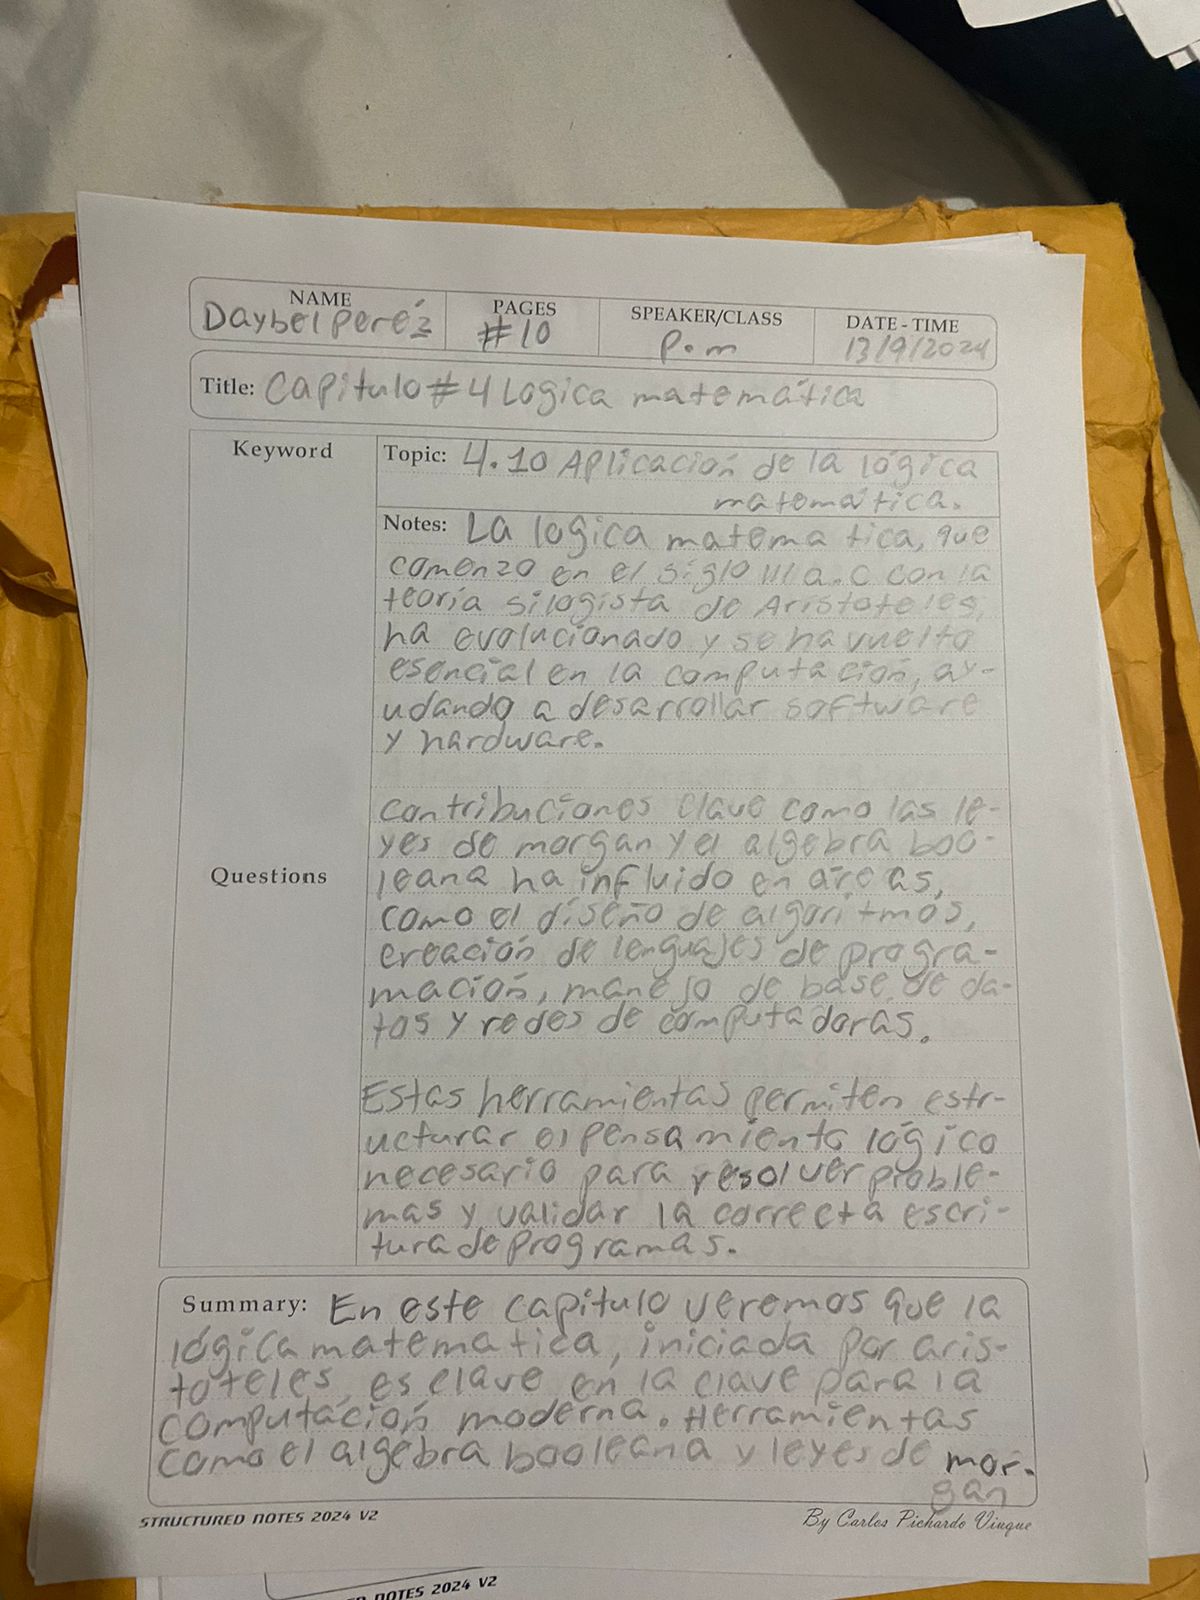 NAME PAGES SPEAKER/CLASS DATE - TIME
Daybel Peréz #10 P.m 13/9/2024
Title: Capitulo #4 Logica matemática
Keyword
Topic: 4.10 Aplicación de la lógica
matemática.
Notes: La logica matematica, que
comenzo en el siglo III a.C con la
teoría silogista de Aristoteles,
ha evolucionado y se ha vuelto
esencial en la computación, ay-
udando a desarrollar software
y hardware.
contribuciones clave como las le-
yes de morgan y el algebra boo-
leana ha influido en áreas,
como el diseño de algoritmos,
creación de lenguajes de progra-
mación, manejo de base de da-
tos y redes de computadoras.
Questions
Estas herramientas permiten estr-
ucturar el pensamiento lógico
necesario para resolver proble-
mas y validar la correcta escri-
tura de programas.
Summary: En este capitulo veremos que la
lógica matematica, iniciada por aris-
toteles, es clave en la clave para la
computación moderna. Herramientas
como el algebra booleana y leyes de mor-
gan
STRUCTURED NOTES 2024 V2 By Carlos Pichardo Viuque
ED NOTES 2024 V2